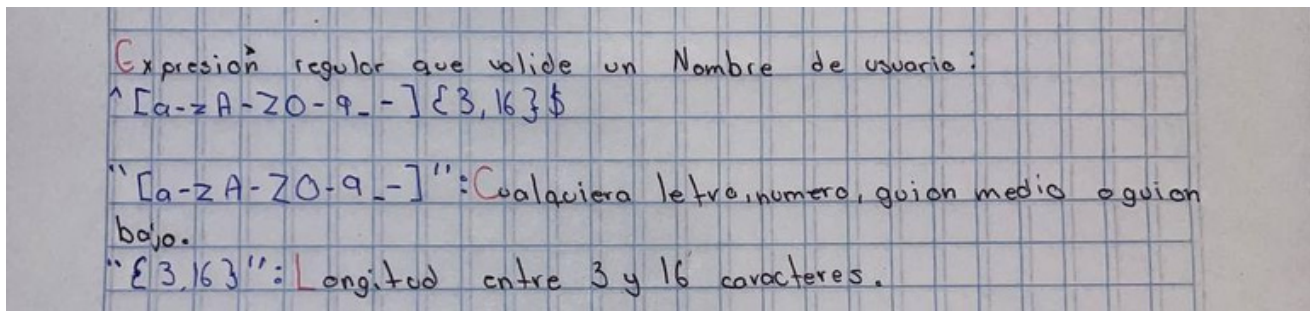 Expresión regular que valide un Nombre de usuario:
^[a-zA-Z0-9_-]{3,16}$
"[a-zA-Z0-9_-]":Cualquiera letra,numero, guion medio o guion
bajo.
"{3,16}":Longitud entre 3 y 16 caracteres.